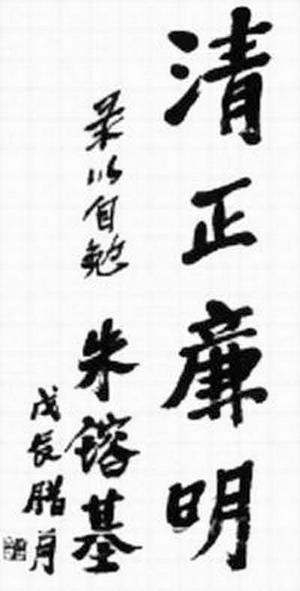 清正廉明
录以自勉
朱镕基
戊辰腊月